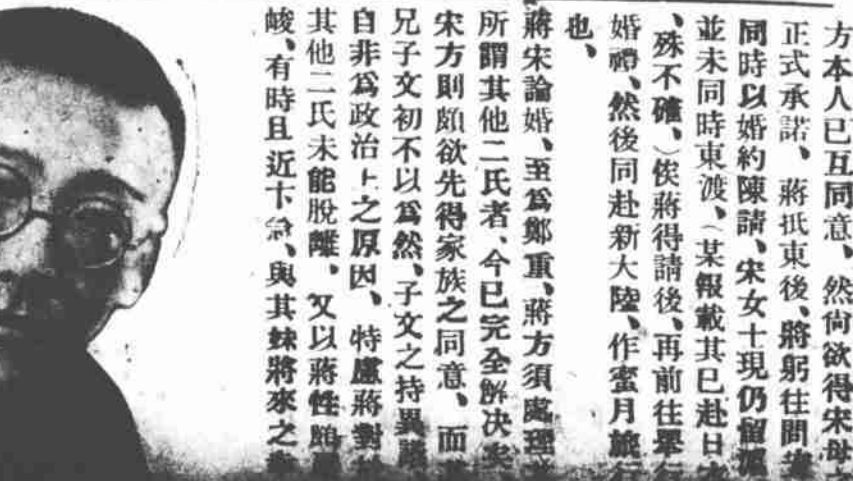 方本人已互同意、然尙欲得宋母
正式承諾、蔣抵東後、將躬往問
同時以婚約陳請、宋女士現仍留滬
並未同時東渡、（某報載其已赴日
、殊不確、）俟蔣得請後、再前往舉行
婚禮、然後同赴新大陸、作蜜月旅行
也、
蔣宋論婚、至爲鄭重、蔣方須處理
所謂其他二氏者、今已完全解决矣
宋方則頗欲先得家族之同意、而
兄子文初不以爲然、子文之持異議
自非爲政治上之原因、特慮蔣對於
其他二氏未能脫離、又以蔣性頗
峻、有時且近卞急、與其妹將來之